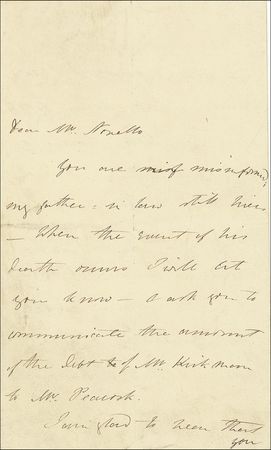 Dear Mr. Novello
You are misinformed,
my father-in law still lives
– When the event of his
death occurs I will let
you know – & ask you to
communicate the amount
of the Debt of Mr. Kirkman
to Mr. Peacock.
I am glad to hear that
you